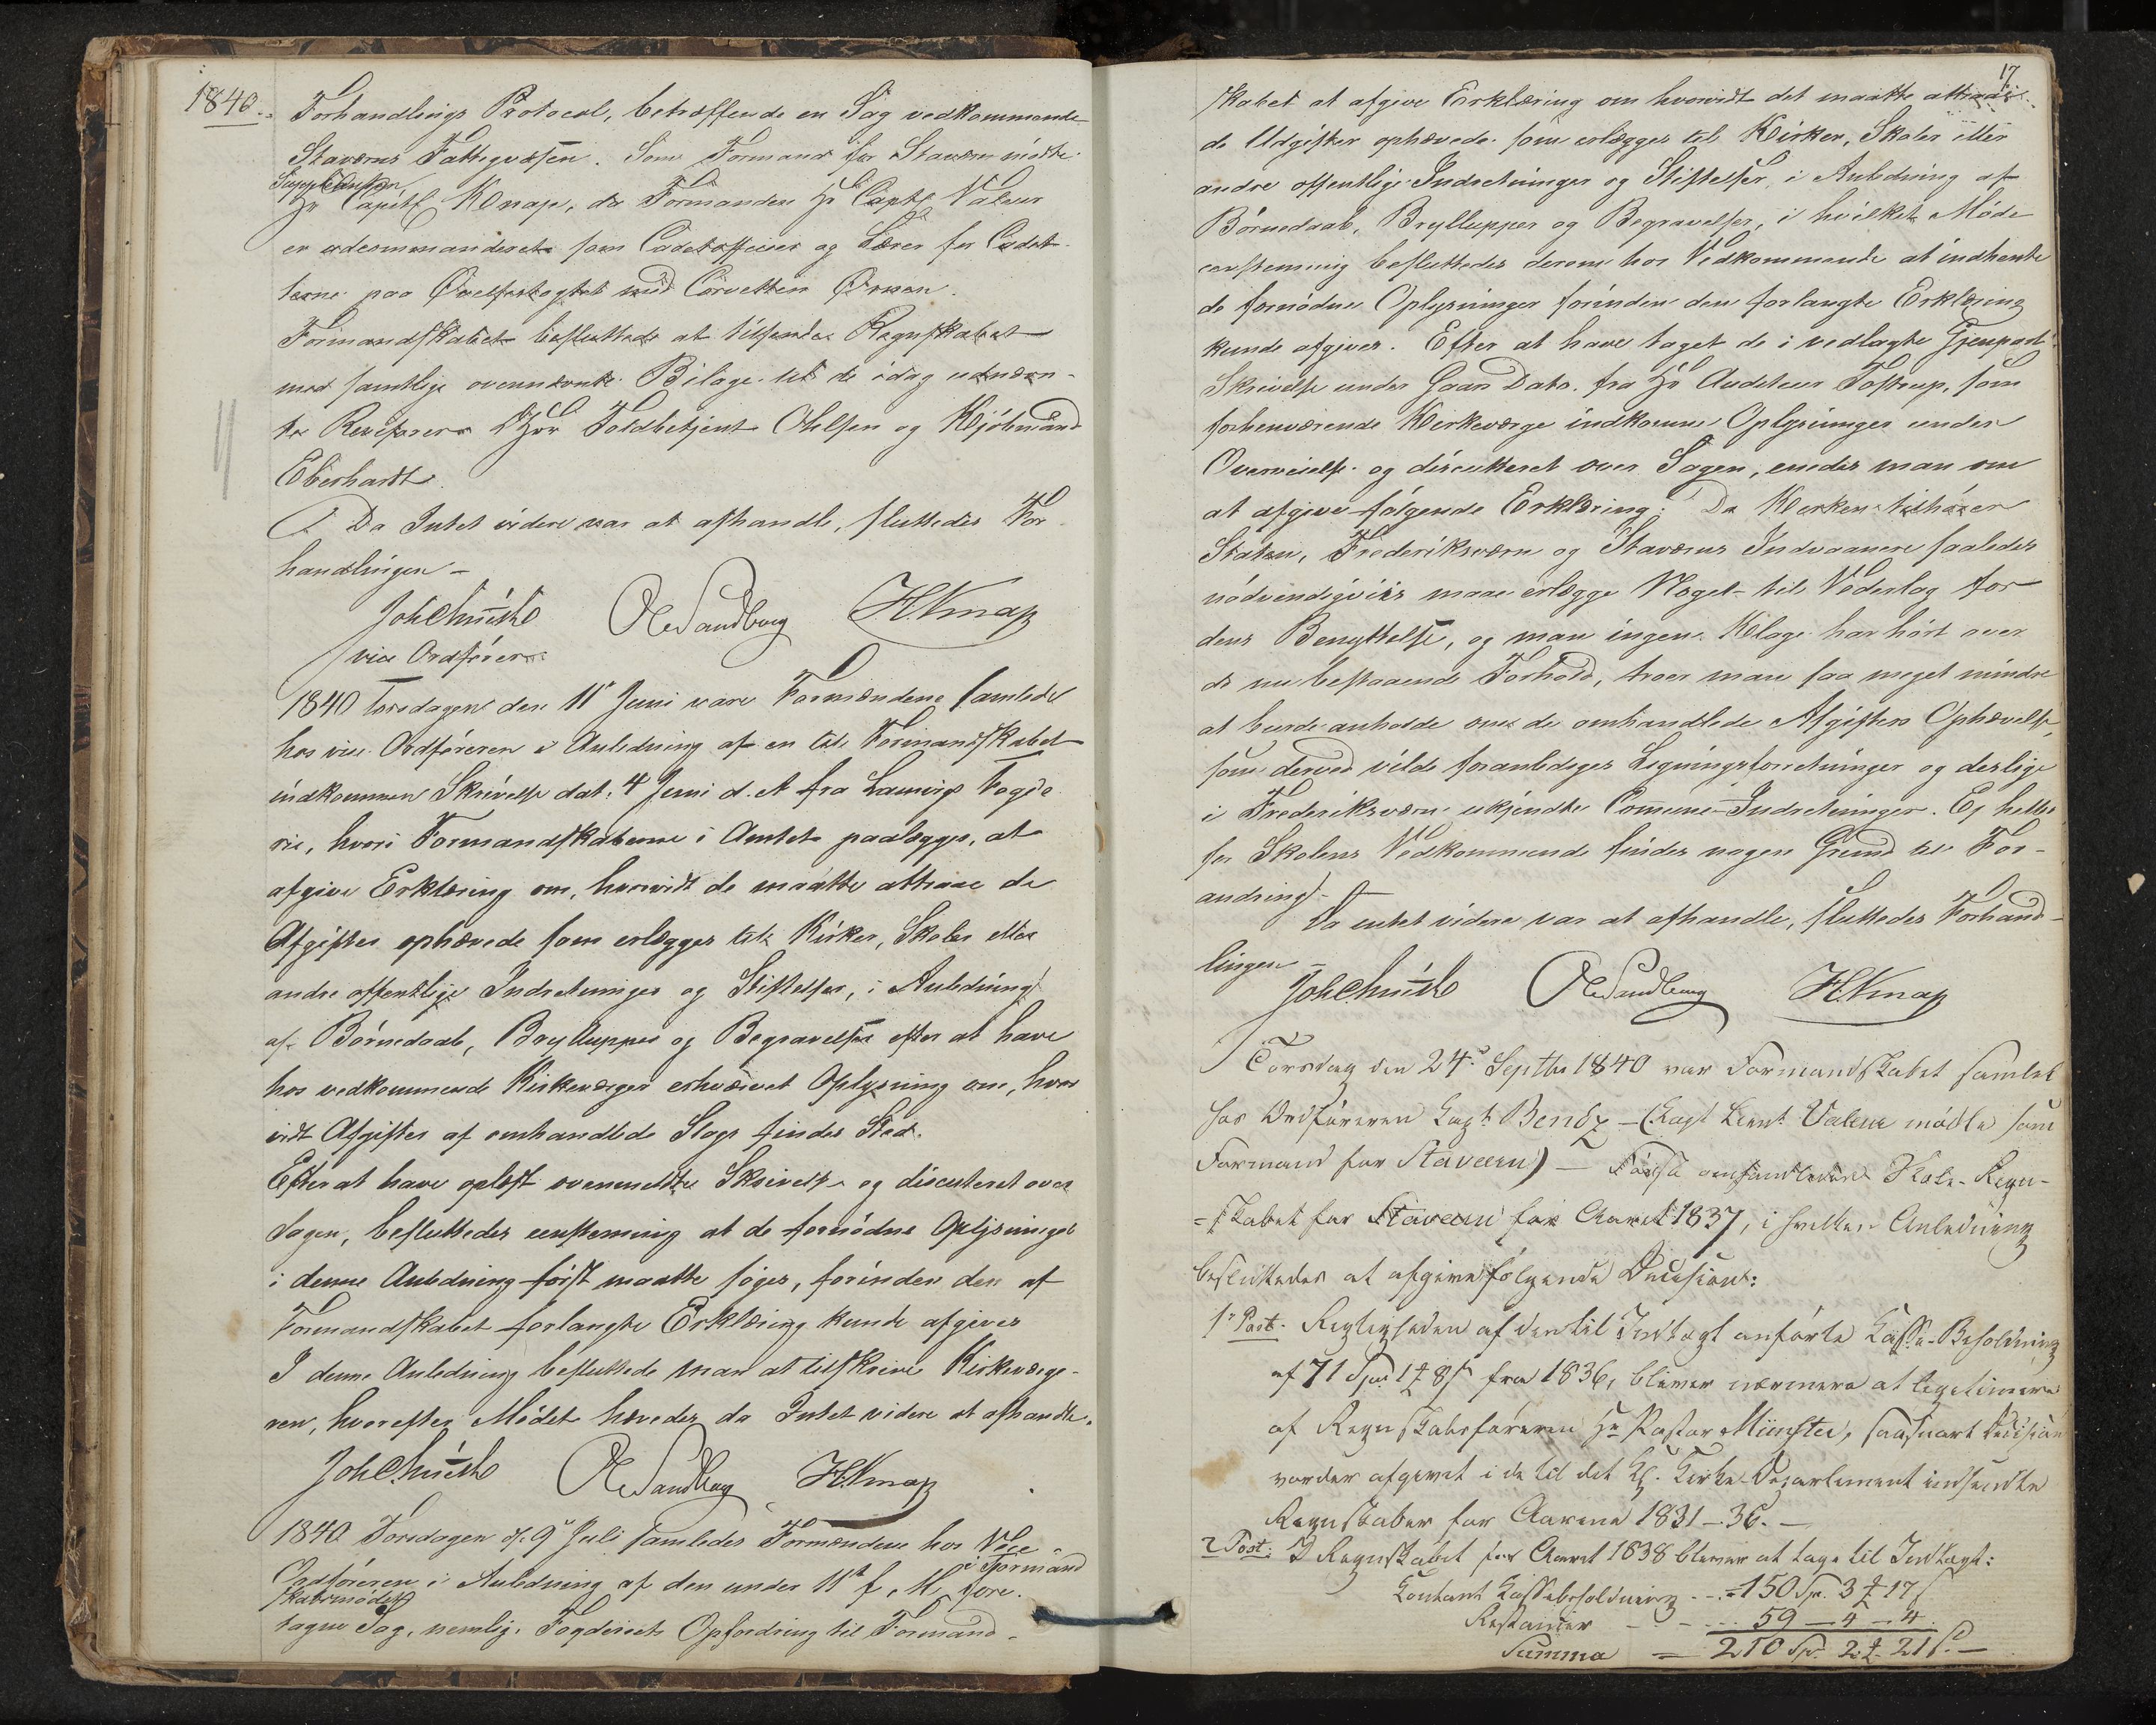 1840.
Forhandlings Protocol, betræffende en Sag vedkommende
Staværns Fattigvæsen. Som Formand for Staværn mødte
Suppleanten
Hr Capitl Knap, da Formanden Hr Captl Valeur
er udcommanderet som Cadetofficier og Lærer for Cadet-
terne paa Øvelsestogtet med Corvetten Ørnen.
Formandskabet besluttede at tilsende Regnskabet
med samtlige ovennævnte Bilage til de idag udnævn-
te Revisorer Hrr Toldbetjent Olelsen og Kjøbmand
Eberhardt.
Da Intet videre var at afhandle, sluttedes For-
handlingen -
Joh Chrúish OleSandberg H.Knap
vice Ordfører
1840 Torsdagen den 11te Juni vare Formændene samlede
hos vice Ordføreren i Anledning af en til Formandskabet
indkommen Skrivelse dat: 4 Juni d. A fra Laurvigs Fogde
rie, hvori Formandskaberne i Amtet paalægges, at
afgive Erklæring om, hvorvidt de maatte attraae de
Afgifter ophævede som erlægges til Kirker, Skoler eller
andre offentlige Indretninger og Stiftelser, i Anledning
af Børnedaab, Brylluppes og Begravelser efter at have
hos vedkommende Kirkeværger erhværvet Oplysning om, hvor
vidt Afgifter af omhandlede Slags findes Sted.
Efter at have oplæst ovenmeldte Skrivelse og discuteret over
Sagen, besluttedes eenstemmig at de fornødne Oplysninger
i denne Anledning først maatte søges, forinden den af
Formandskabet forlangte Erklæring kunde afgives
I denne Anledning besluttede man at tilskrive Kirkeværge-
ren, hvorefter Mødet hævedes da Intet videre at afhandle.
Joh Chrúish OleSandberg H.Knap
1840 Torsdagen d. 9de Juli samledes Formændene hos Vice
Ordføreren i Anledning af den under 11te f. M. i Formand
skabsmødet fore.
tagne Sag, nemlig: Fogderiets Opfordring til Formand-
17
skabet at afgive Erklæring om hvorvidt det maatte attraae
de Udgifter ophævede som erlægges til Kirker, Skoler eller
andre offentlige Indretninger og Stiftelser, i Anledning af
Børnedaab, Brylluppes og Begravelser, i hvilket Møde
eenstemmig besluttedes derom hos Vedkommende at indhente
de fornødne Oplysninger forinden den forlangte Erklæring
kunde afgives. Efter at have taget de i vedlagte Gjenpart
Skrivelse under Gaars Dato fra Hr Auditeur Tostrup, som
forhenværende Kirkeværge indkomne Oplysninger under
Overveielse og discuteret over Sagen, enedes man om
at afgive følgende Erklæring: Da Kirken tilhører
Staten, Frederiksværn og Staværns Indvaanere saaledes
nødvendigviis maae erlægge Noget til Vederlag for
dens Benyttelse, og man ingen Klage har hørt over
de nu bestaaende Forhold, troer man saa meget mindre
at burde anholde om de omhandlede Afgifters Ophævelse,
som derved vilde foranlediges Ligningsforretninger og deslige
i Frederiksværn ukjendte Commune-Indretninger. Ej heller
for Skolens Vedkommende findes nogen Grund til For-
andring -
Da intet videre var at afhandle, sluttedes Forhand-
lingen -
Joh Chrúish OleSandberg H.Knap
Torsdag den 24de Septbr 1840 var Formandskabet samlet
hos Ordføreren Capt: Bentz - (Capt Leut Valeur mødte som
Formand for Staværn) - omhandledes Skole-Regn-
=skabet for Staværn for Aaret 1837, i hvilken Anledning
besluttedes at afgive følgende Decision:
1ste Post. Rigtigheden af den til Indtægt anførte Kasse-Beholdning
af 71 Spd 1 # 8 s fra 1836, bliver nærmere at legitimere
af Regnskabsføreren Hr Pastor Münster, saasnart Decision
vorder afgivet i de til det Kl. Kirke-Departement indsendte
Regnskaber for Aarene 1831-36. -
2 Post: I Regnskabet for Aaret 1838 bliver at tage til Indtægt:
Contant Kassebeholdning - - = 150 Sp. 3 # 17 s
Restancier - - - 59 - 4 - 4
Summa = 210 Sp. 2 # 21 s. -